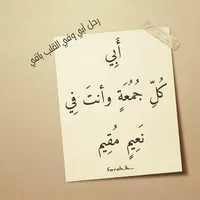 رحل أبي وفي القلب باقي
أَبِي
كُلِّ جُمُعَةٍ وأنتَ فِي
نَعِيمٍ مُقِيم
farah.h__